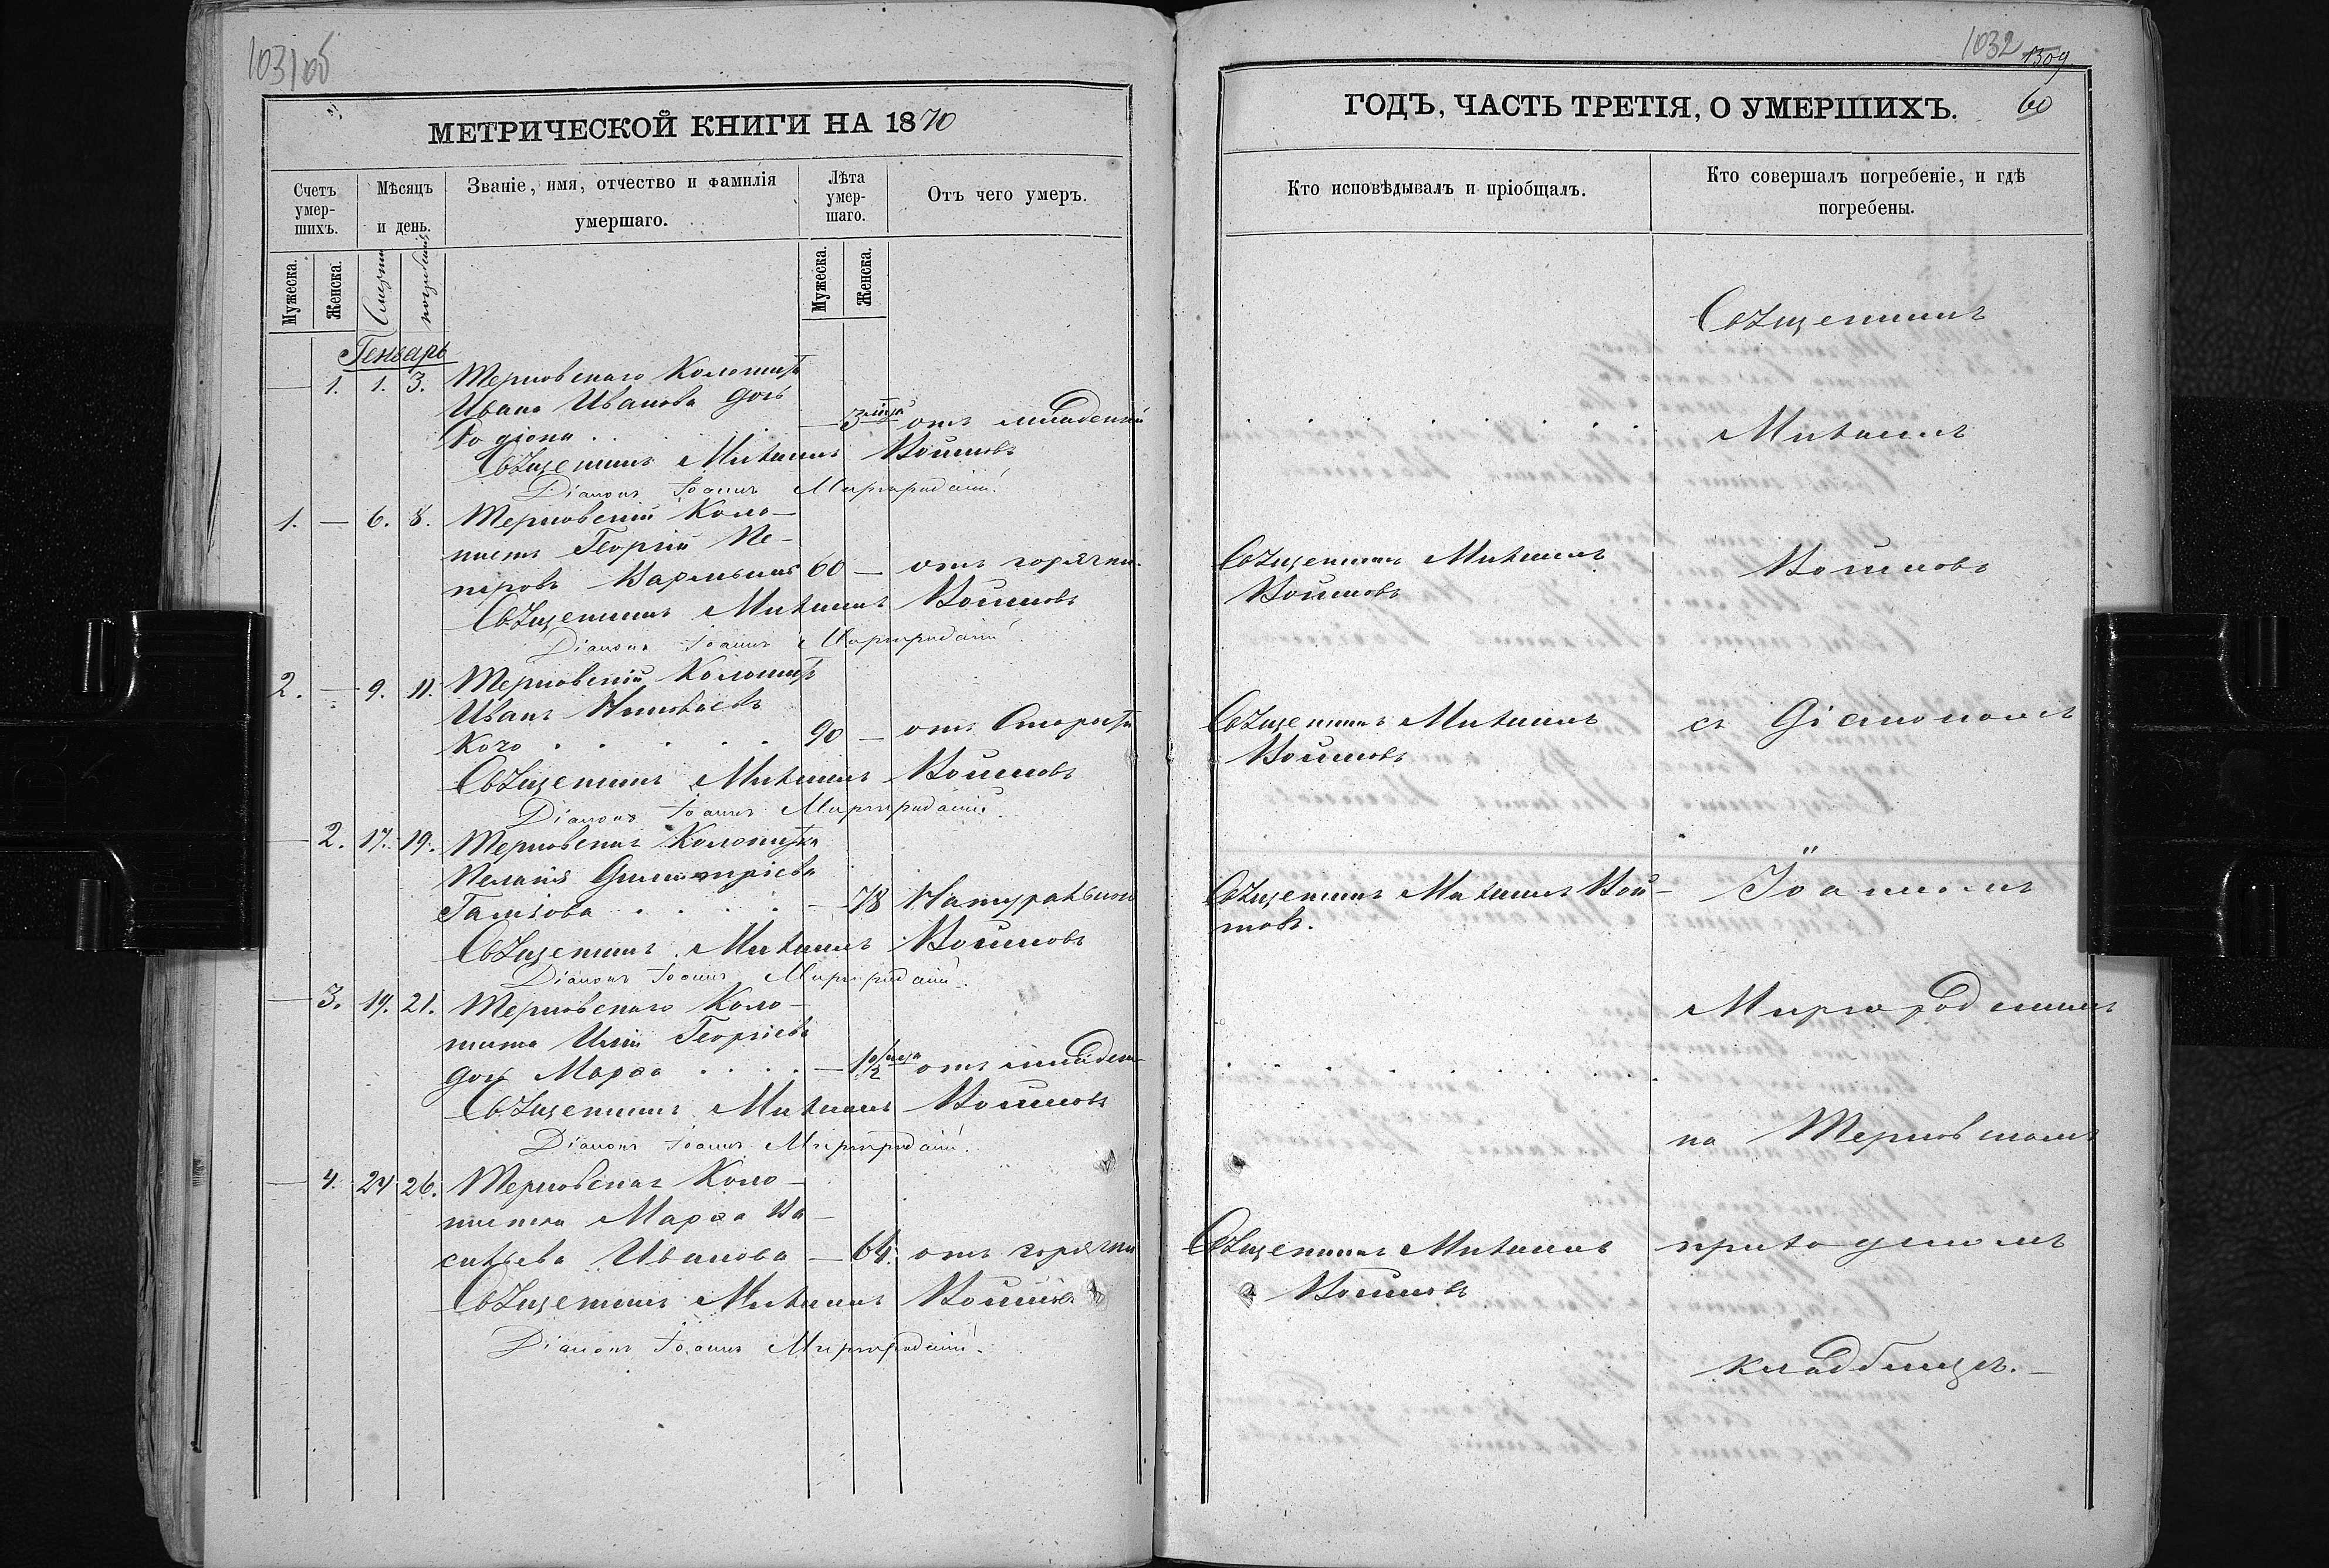 1031об
МЕТРИЧЕСКОЙ КНИГИ НА 1870
Счетъ умер-шихъ.
Мѣсяцъ и день.
Званіе, имя, отчество и фамилія умершаго.
Лѣта умер-шаго.
Отъ чего умеръ.
Мужеска.
Женска.
Смерти
погребенія
Мужеска.
Женска.
Генварь
— 1. 1. 3. Терновскаго Колониста
Ивана Иванова дочь
— 3 отъ младенч
Священникъ Михаилъ Войновъ
Діаконъ Іоаннъ Миргородскій.
1. — 6. 8. Терновскій Коло-
нистъ Георгій Пе-
тровъ 60 — отъ горячки.
Священникъ Михаилъ Войновъ
Діаконъ Іоаннъ Миргородскій
2. — 9. 11. Терновскій Колонистъ
Иванъ
Кого . . . . . 90 — отъ Старости
Священникъ Михаилъ Войновъ
Діаконъ Іоаннъ Миргородскій.
— 2. 17. 19. Терновская Колонистка
Пелагія Димитріева
. . . . — 78 Натурально
Священникъ Михаилъ Войновъ
Діаконъ Іоаннъ Миргородскій.
— 3. 19. 21. Терновскаго Коло-
ниста Иліи Георгіева
дочь Марѳа . . . . — 1 1/2 отъ младен-
Священникъ Михаилъ Войновъ
Діаконъ Іоаннъ Миргородскій.
— 4. 24 26. Терновская Коло-
нистка Марѳа Ва-
сильева Иванова — 64. отъ горячки
Священникъ Михаилъ Войновъ
Діаконъ Іоаннъ Миргородскій.
1032 1309
ГОДЪ, ЧАСТЬ ТРЕТІЯ, О УМЕРШИХЪ. 60
Кто исповѣдывалъ и пріобщалъ.
Кто совершалъ погребеніе, и гдѣ погребены.
Священникъ
Михаилъ
Священникъ Михаилъ
Войновъ
Войновъ
Священникъ Михаилъ
Войновъ
съ Діакономъ
Священникъ Михаилъ Вой-
новъ.
Іоанномъ
Миргородскимъ
на Терновскомъ
Священникъ Михаилъ
Войновъ
приходскомъ
кладбищѣ.